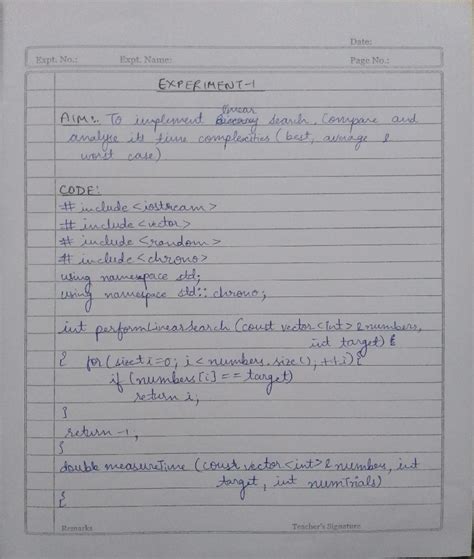 Date:
Expt. No.: Expt. Name: Page No.:
EXPERIMENT-1
linear
AIM:- To implement search. Compare and
analyse its time complexities (best, average &
worst case)
CODE:
# include <iostream>
# include <vector>
# include <random>
# include <chrono>
using namespace std;
using namespace std:: chrono;
int performLinearSearch (const vector <int> & numbers,
int target) {
{ for (size_t i=0; i < numbers.size(); ++i) {
if (numbers[i] == target)
return i;
}
return -1;
}
double measureTime (const vector <int> & number, int
target, int numTrials)
{
Remarks Teacher's Signature